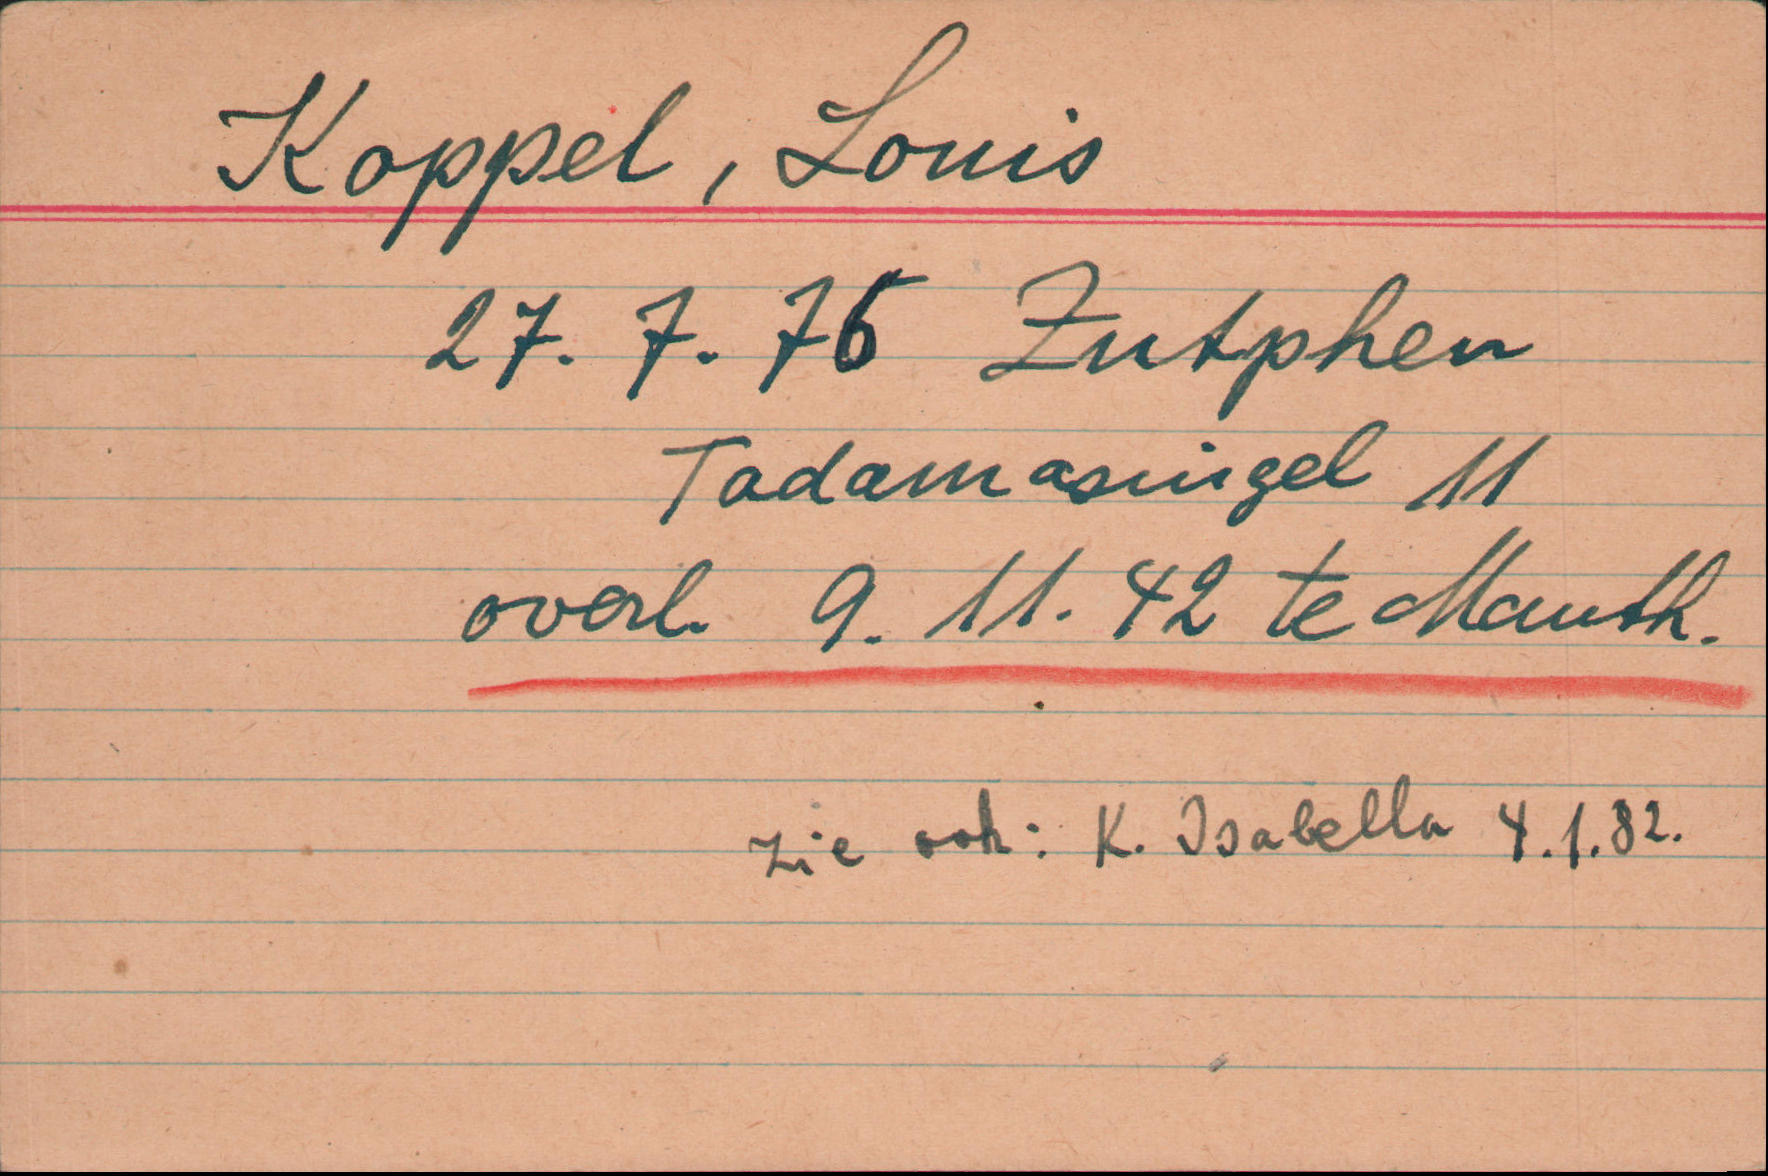 Koppel, Louis
27. 7. 76 Zutphen
Tadamasingel 11
overl. 9. 11. 42 te Mauth.
zie ook: K. Isabella 4.1.82.